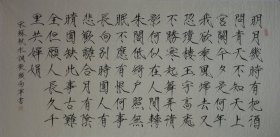 明月幾時有把酒
問青天不知天上
宮闕今夕是何年
我欲乘風歸去又
恐瓊樓玉宇高處
不勝寒起舞弄清
影何似在人間轉
朱閣低綺戶照無
眠不應有恨何事
長向別時圓人有
悲歡離合月有陰
晴圓缺此事古難
全但願人長久千
里共嬋娟
宋蘇軾水調歌頭書